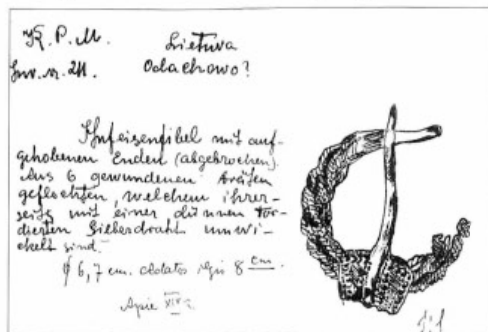 K. P. M.
Lietuva
Inv. nr. 211.
Odachowo?
Hufeisenfibel mit auf-
gehobenen Enden (abgebrochen).
Aus 6 gewundenen
geflochten, welchem ihrer-
seits mit einer dünnen tor-
dierten Silberdraht umwi-
ckelt sind.
6,7 cm. 8 cm.
Apie XIV